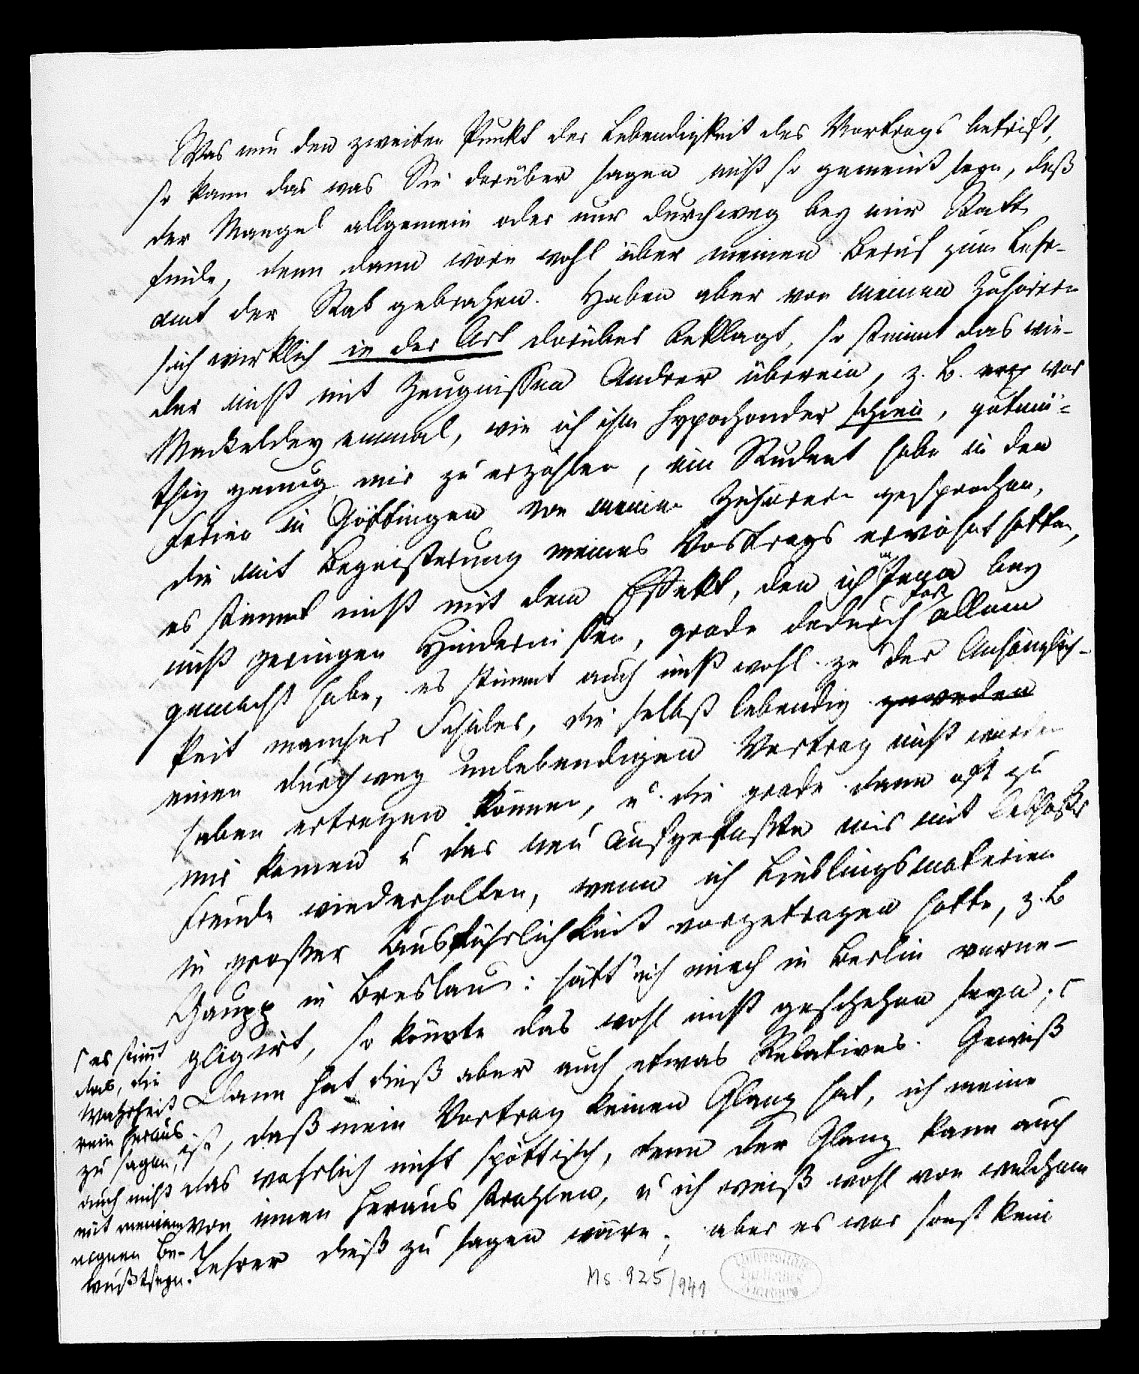 Was nun den zweiten Punkt der Lebendigkeit des Vortrags betrift,
so kann das was Sie darüber sagen nicht so gemeint seyn, daß
der Mangel allgemein oder nur durchweg bey mir Statt
finde, denn dann wäre wohl über meinen Beruf zum Lehr-
amt der Stab gebrochen. Haben aber von meinen Zuhörern
sich wirklich in der Art darüber beklagt, so stimmt das wie-
der nicht mit Zeugnissen Andrer überein, z. B. war
Mackeldey einmal, wie ich ihm hypochonder schien, gutmü-
thig genug mir zu erzählen, ein Student habe in den
Ferien in Göttingen von meinen Zuhörern gesprochen,
die mit Begeisterung meines Vortrags erwähnt hätten,
es stimmt nicht mit dem Effekt, den ich in Jena bey
nicht geringen Hindernissen, grade dadurch fast allein
gemacht habe, es stimmt auch nicht wohl zu der Anhänglich-
keit mancher Schüler, die selbst lebendig geweden
einen durchweg unlebendigen Vortrag nicht würden
haben ertragen können, u. die grade dann oft zu
mir kamen u das neu Aufgefaßte mir mit lebhafter
Freude wiederholten, wenn ich Lieblingsmaterien
in großer Ausführlichkeit vorgetragen hatte, z. B
Gaupp in Breslau: hätt' ich mich in Berlin verne-
gligirt, so könnte das wohl nicht geschehen seyn;
Dann hat dieß aber auch etwas Relatives. Gewiß
ist, daß mein Vortrag keinen Glanz hat, ich meine
das wahrlich nicht spöttisch, denn der Glanz kann auch
von innen heraus strahlen, u ich weiß wohl von welchem
Lehrer dieß zu sagen wäre; aber es war sonst kein
es stimmt
das, die
Wahrheit
rein heraus
zu sagen,
auch nicht
mit meinem
eignen Be-
wußtseyn.
Ms. 925/941